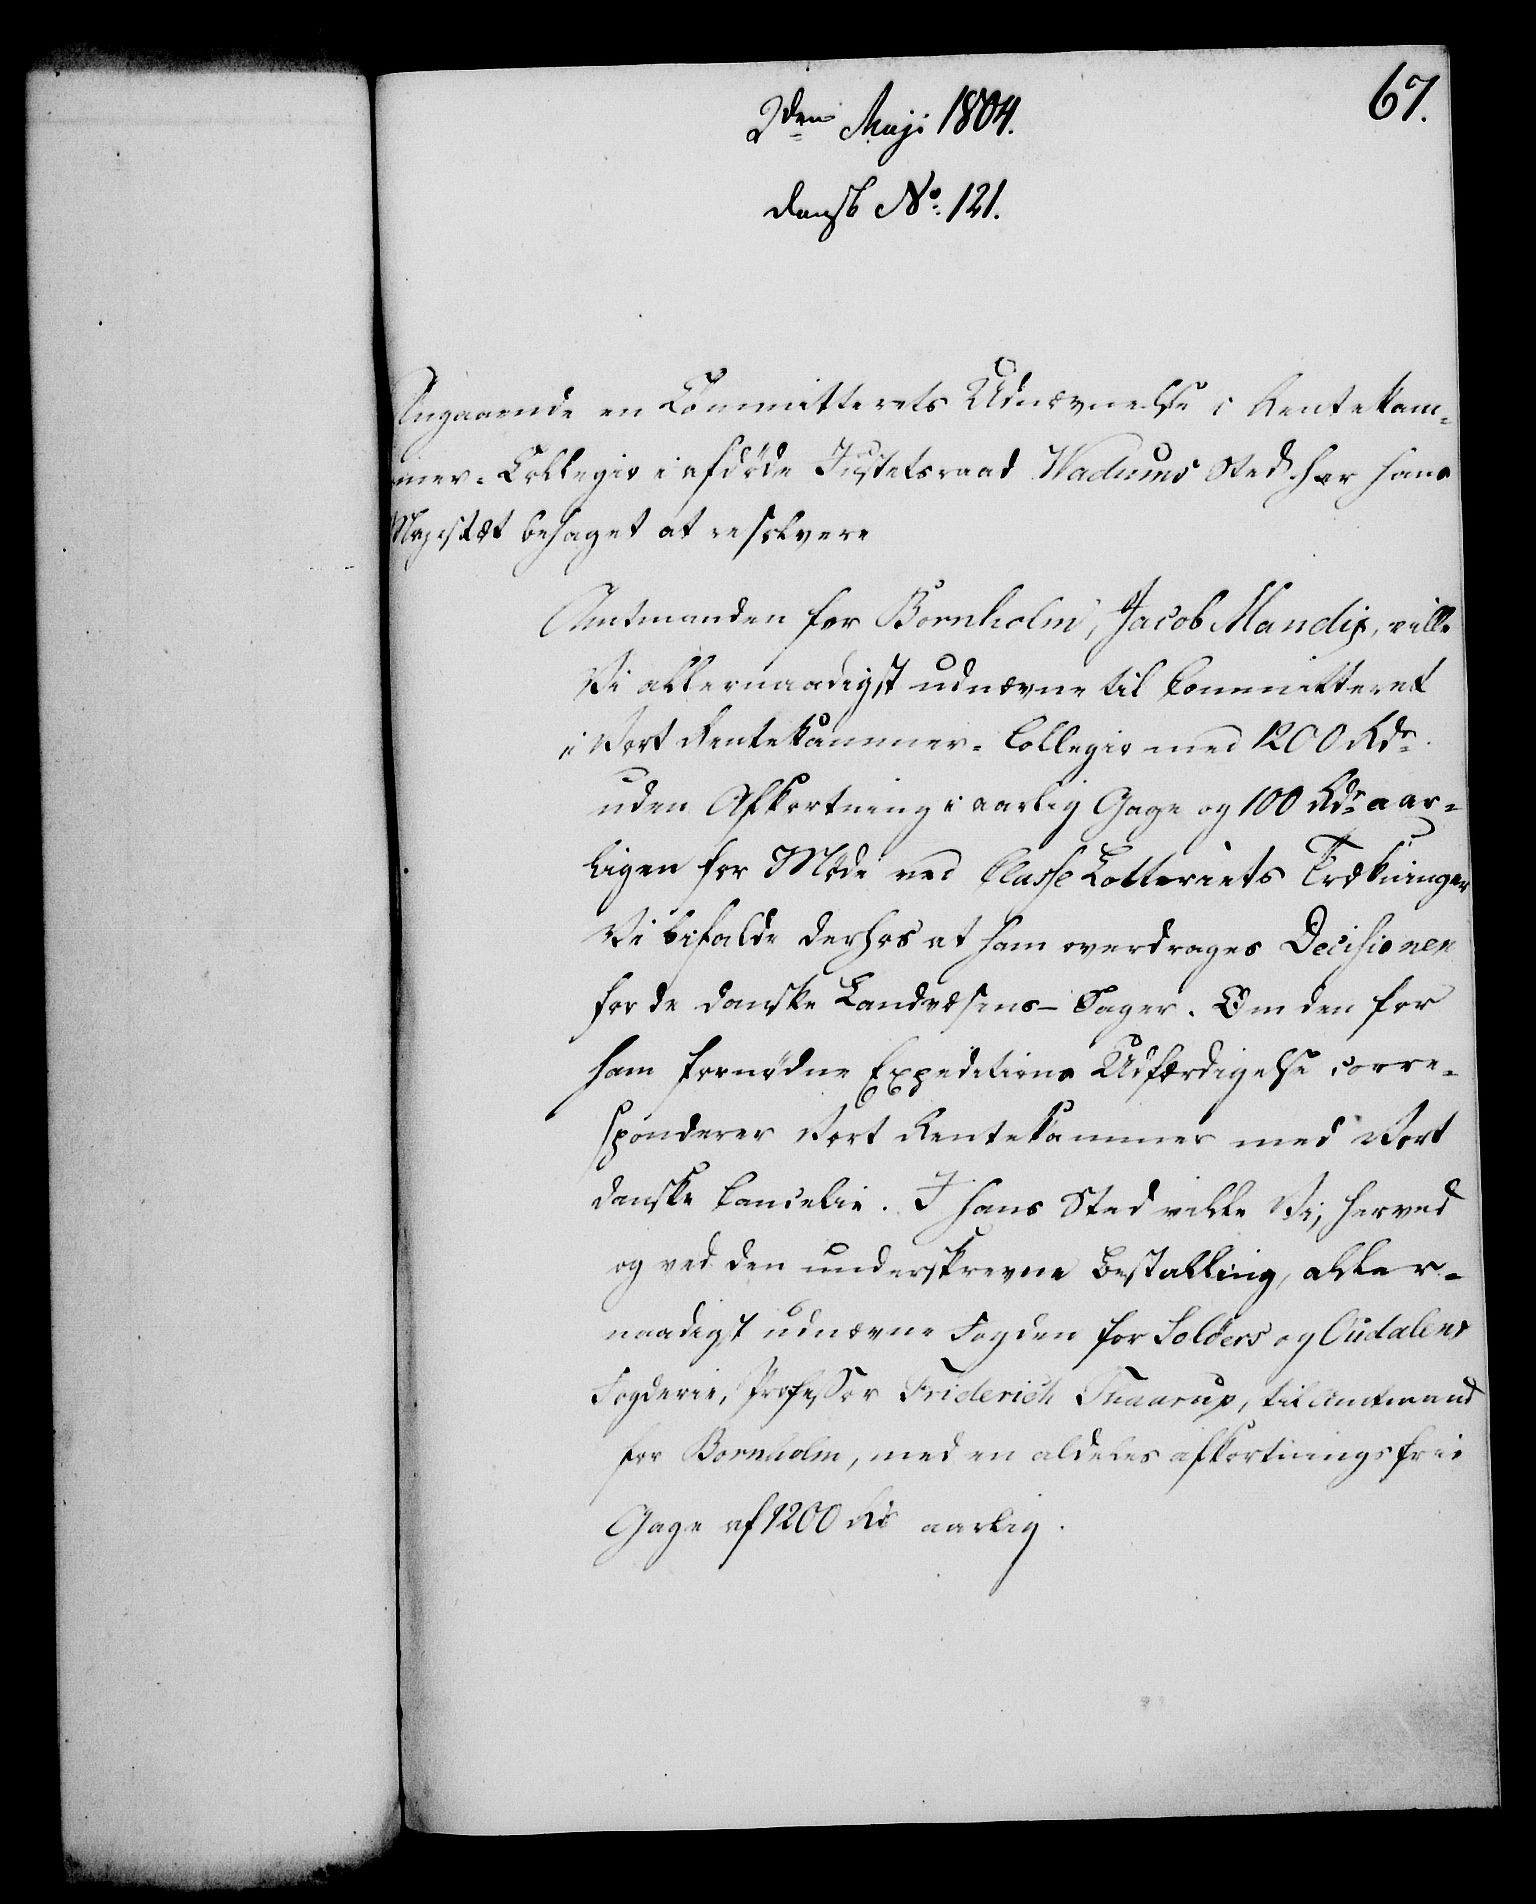 67.
2den Maji 1804.
dansk No. 121.
Angaaende en Committerets Udnævnelse i Rentekam-
mer-Collegio i afdøde Justitsraad Wadums Sted har Hans
Majestæt behaget at resolvere
Amtmanden for Bornholm, Jacob Mandix, ville
Vi allernaadigst udnævne til Committeret
i Vort Rentekammer-Collegio med 1200 Rdr.
uden Afkortning i aarlig Gage og 100 Rdr aar-
ligen for Møde ved Classe Lotteriets Trækninger
Vi bifalde derhos at ham overdrages Decisionen
for de danske Landvæsens-Sager. Om den for
ham fornødne Expeditions Udfærdigelse corre-
sponderer Vort Rentekammer med Vort
danske Cancelie. I hans Sted ville Vi, herved
og ved den underskrevne Bestalling, aller-
naadigst udnævne Fogden for Soløers og Oudalens
Fogderie, Professor Friderich Thaarup, til Amtmand
for Bornholm, med en aldeles afkortningsfrie
Gage af 1200 Rd aarlig.